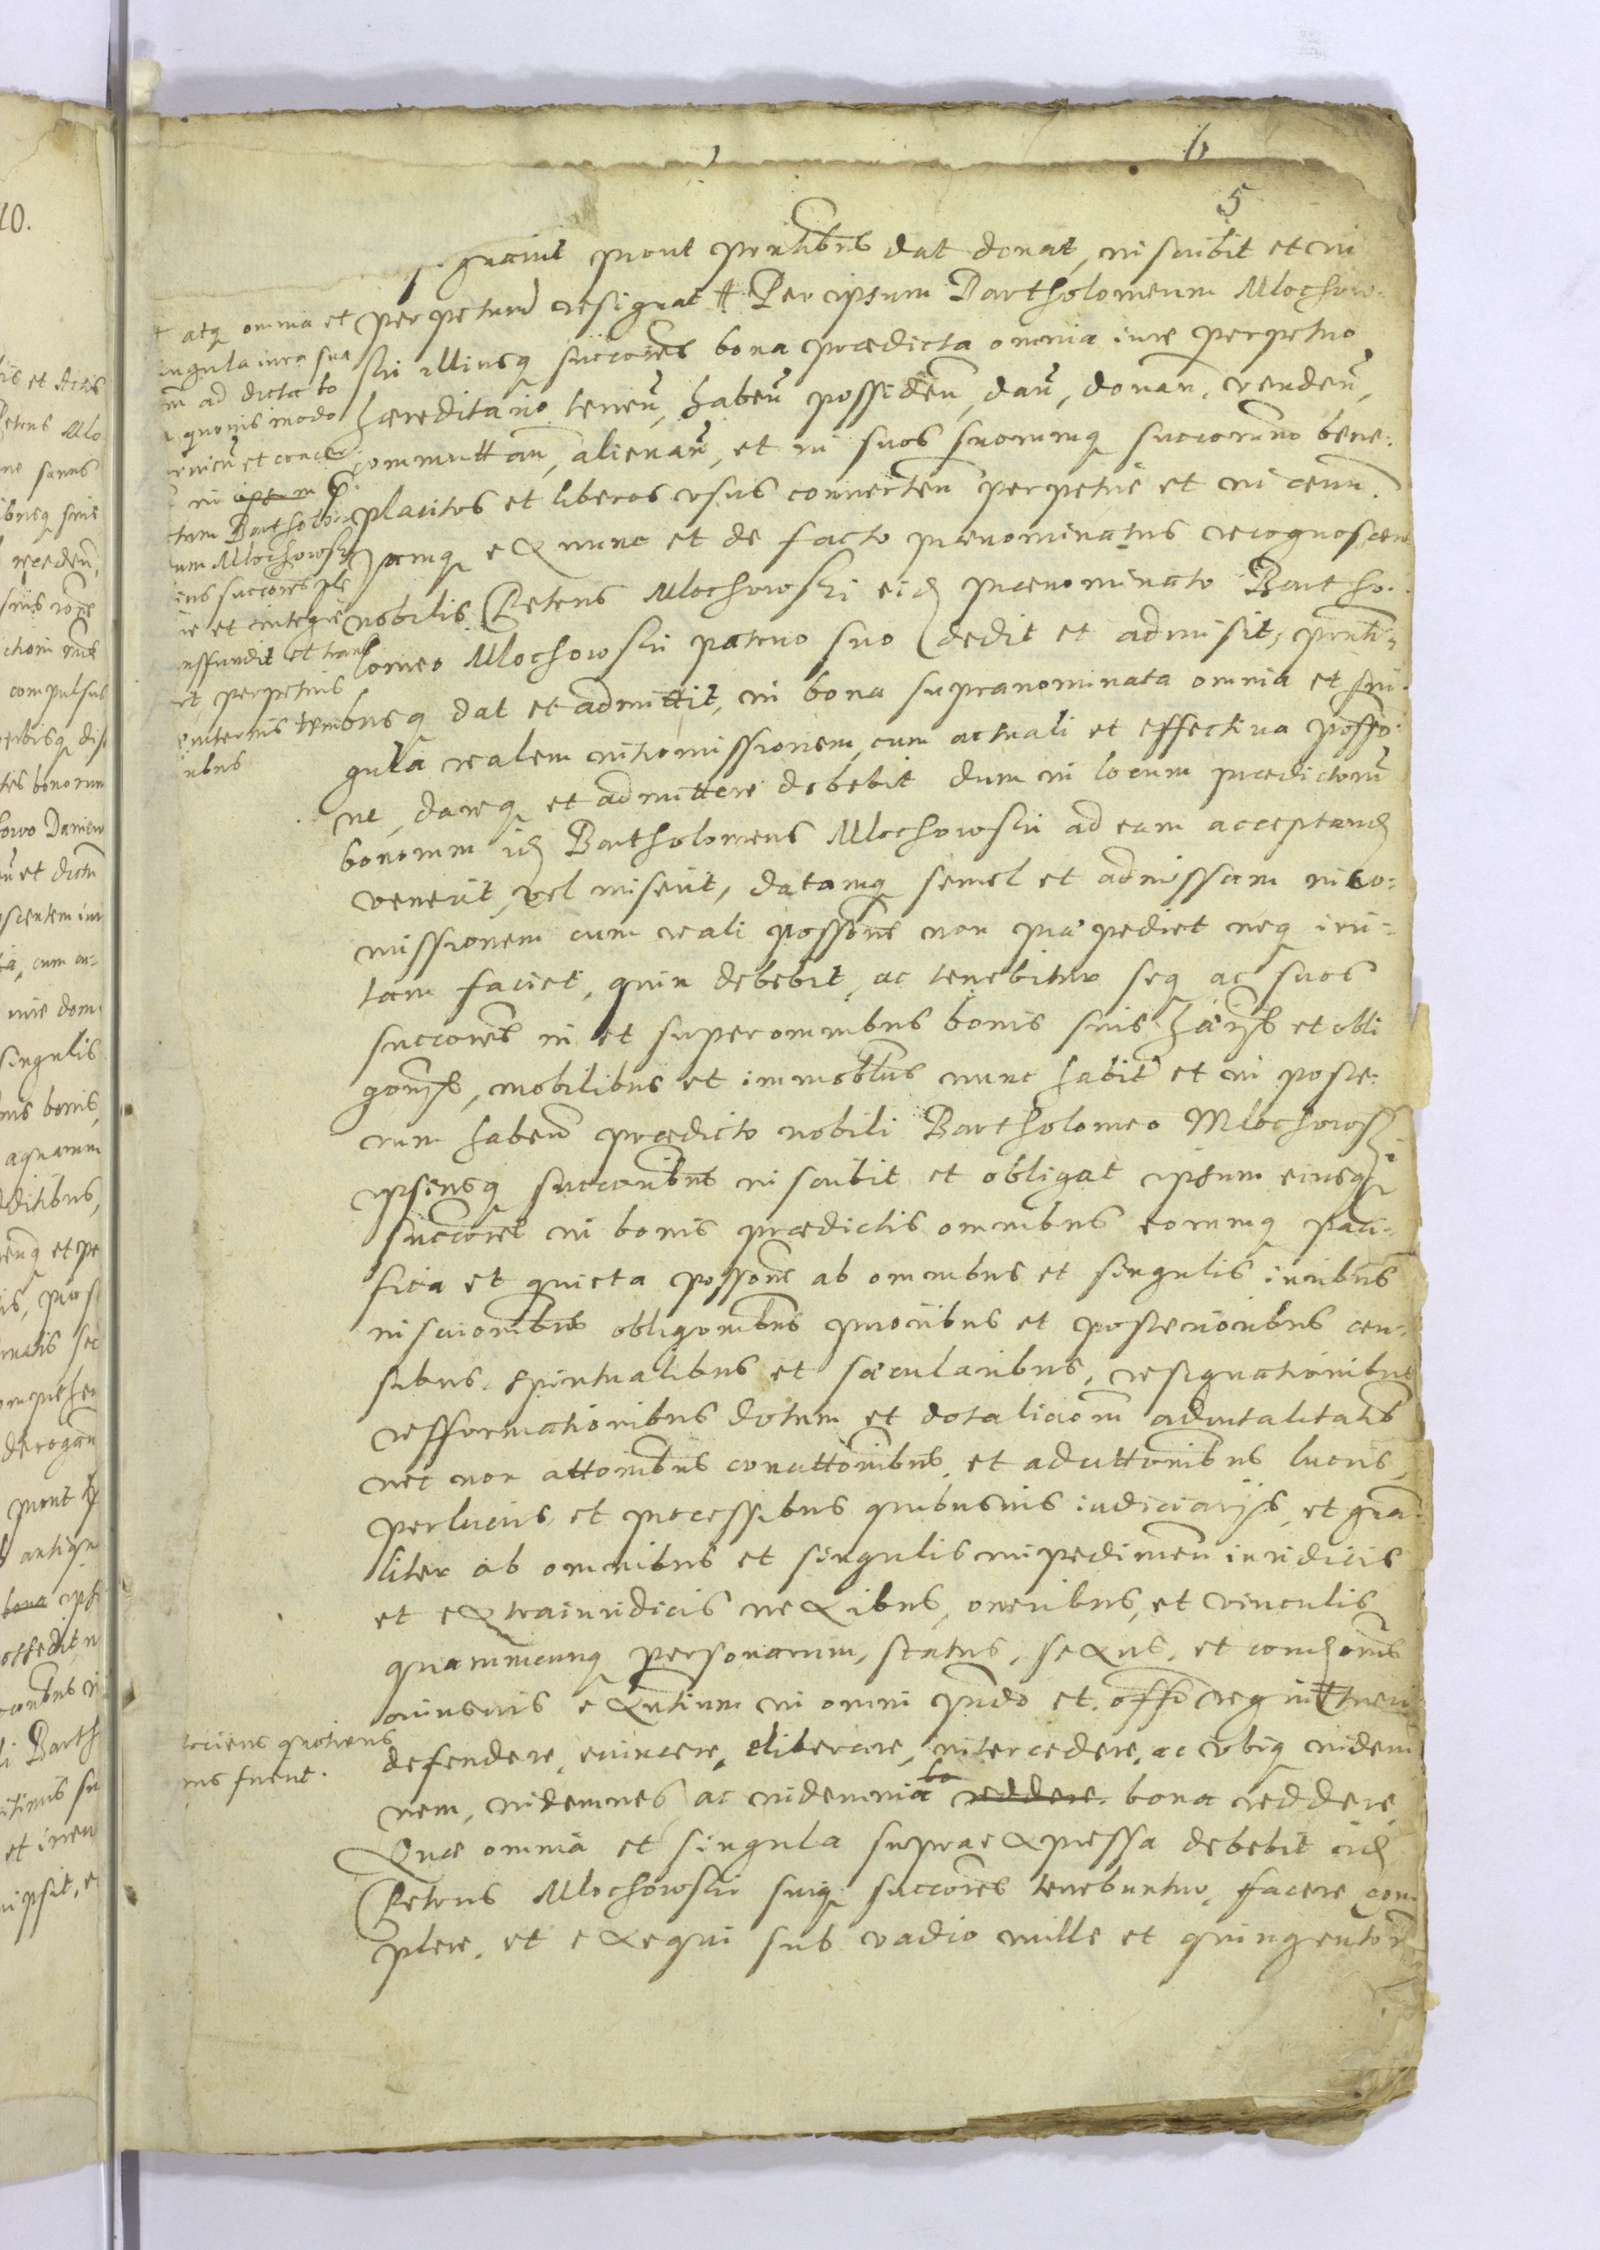 6
5
gnavit prout prntibus dat donat, inscribit et in
perpetuum resignat # Per ipsum Bartholomeum Mlochow-
ski illiusq succores bona praedicta omnia iure perpetuo
haereditario tenen, haben possiden, dan, donan, venden,
commuttan, alienan, et in suos suorumq succorum bene-
placitos et liberos usus conuerten perpetue et in aeuum.
Iamq ex nunc et de facto praenominatus recognoscen
nobilis Petrus Mlochowski eid praenominato Bartho-
lomeo Mlochowski patruo suo dedit et admisit, prnti-
busq dat et admittit, in bona supranominata omnia et sin-
gula realem intromissionem, cum actuali et effectiua posso-
ne, dareq et admittere debebit dum in locum praedictoru
bonorum id Bartholomeus Mlochowski ad eam acceptand
venerit, vel miserit, datamq semel et admissam intro-
missionem cum reali possone non praepediet neq irri-
tam faciet, quin debebit, ac tenebitur seq ac suos
succores in et super omnibus bonis suis haerys et obli
gonys, mobilibus et immobbus nunc habit et in poste-
rum haben praedicto nobili Bartholomeo Mlochowski
ipsiusq succoribus inscribit et obligat ipsum eiusq
succores in bonis praedictis omnibus eorumq paci-
fica et quieta possone ab omnibus et singulis iuribus
inscrionibus obligonibus prioribus et posterioribus cen-
sibus spiritualibus et saecularibus, resignationibus
refformationibus dotum et dotaliciorum aduitalitatis
nec non attonibus conuttonibus, et aduttonibus lucris,
perlucris, et processibus quibusuis iudiciarys, et gna-
liter ab omnibus et singulis impedimen iuridicis
et extraiuridicis nexibus, oneribus, et vinculis
quarumcunq personarum, status, sexus, et condonis
cuiusuis exntium in omni iudo et offo reg intueri
defendere, euincere, eliberare, intercedere, ac ubiq indem
nem, indemnes, ac indemnia reddere bona reddere
Quae omnia et singula supra expressa debebit id
Petrus Mlochowski suiq succores tenebuntur, facere com
plere, et exequi sub vadio mille et quingentor
+ atq omnia et
ingula iura sua
ad dicta bo
quouis modo
et concer
in ipsum
tum Bartholo
um Mlochowski
ius succores ple
ie et integre
nsffundit et trans
rt perpetuis
euiternis tem
ribus
tociens quotiens
ius fuerit.
10.
et Actis
Petrus Mlo
sanus
compulsus
bonorum
et dictu
cum
dom
singulis
bonis,
aquarum
et pe
prout
bona
Barth